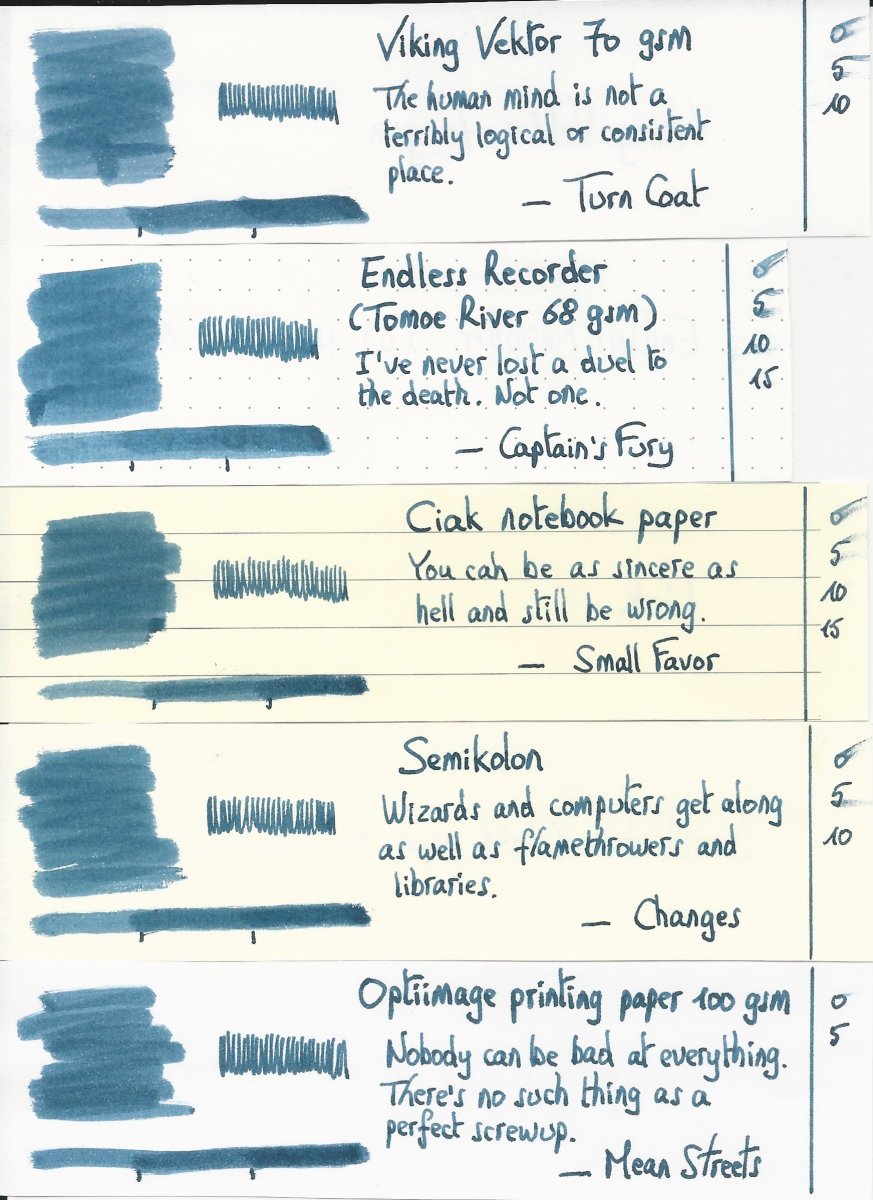 Viking Vektor 70 gsm
The human mind is not a
terribly logical or consistent
place.
— Turn Coat
0
5
10
Endless Recorder
(Tomoe River 68 gsm)
I've never lost a duel to
the death. Not one.
— Captain's Fury
0
5
10
15
Ciak notebook paper
You can be as sincere as
hell and still be wrong.
— Small Favor
0
5
10
15
Semikolon
Wizards and computers get along
as well as flamethrowers and
libraries.
— Changes
0
5
10
Optiimage printing paper 100 gsm
Nobody can be bad at everything.
There's no such thing as a
perfect screwup.
— Mean Streets
0
5